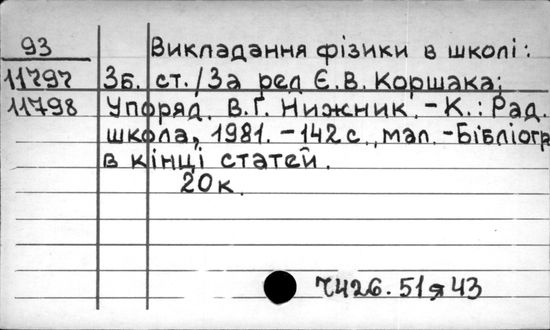 93 Викладання фізики в школі:
11797 Зб. ст./За ред Є.В. Коршака;
11798 Упоряд. В.Г. Нижник. - К.: Рад.
школа, 1981. - 142 с., мал. - Бібліогр
в кінці статей.
20к.
Ч426.51я43